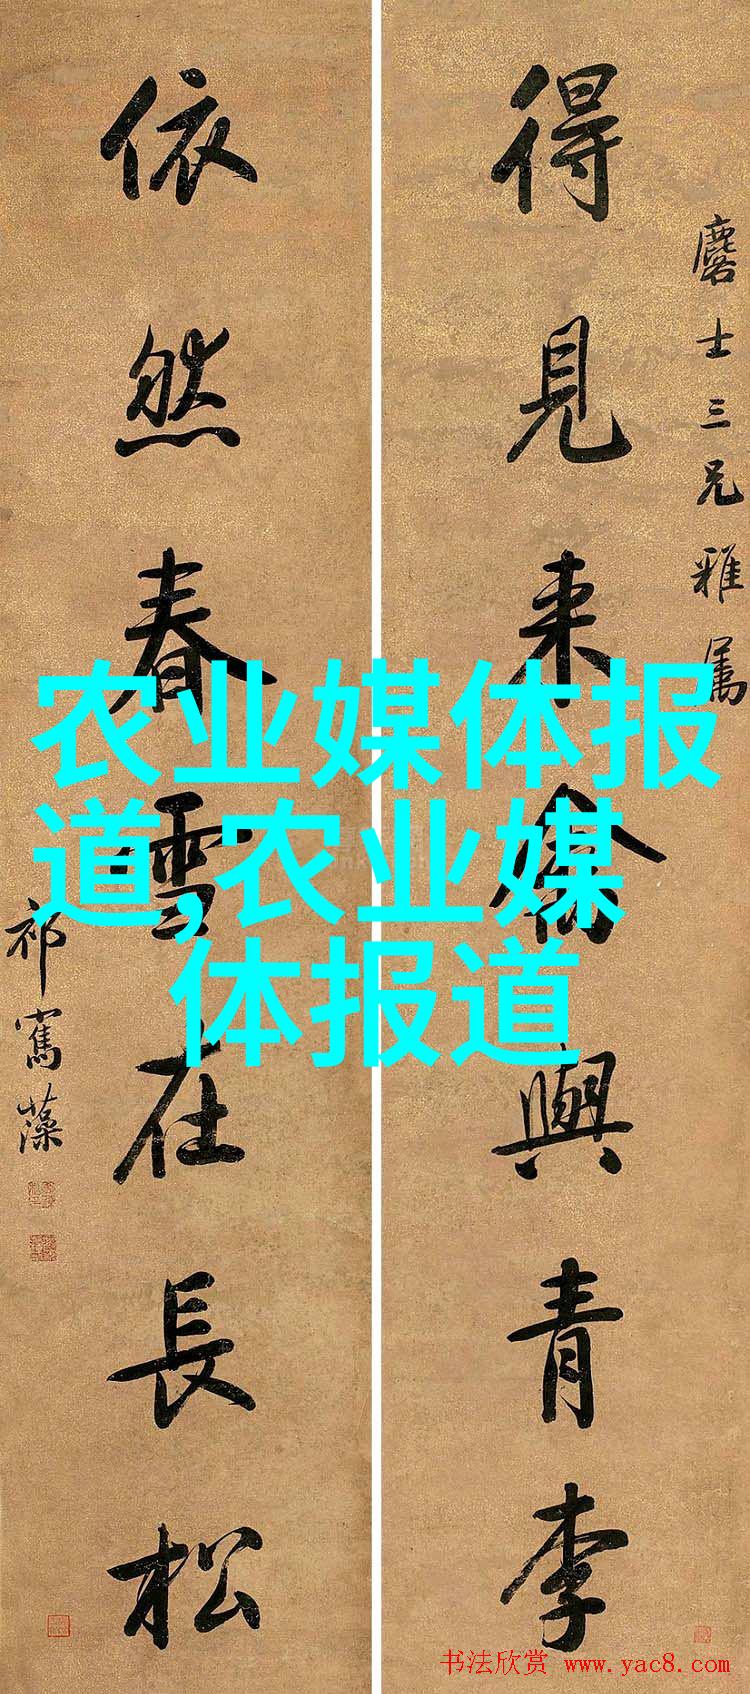 得見来禽與青李
麐士三兄雅属
依然春雪在長松
祁寯藻
农业媒体报
道,农业媒
体报道
书法欣赏 www.yac8.com